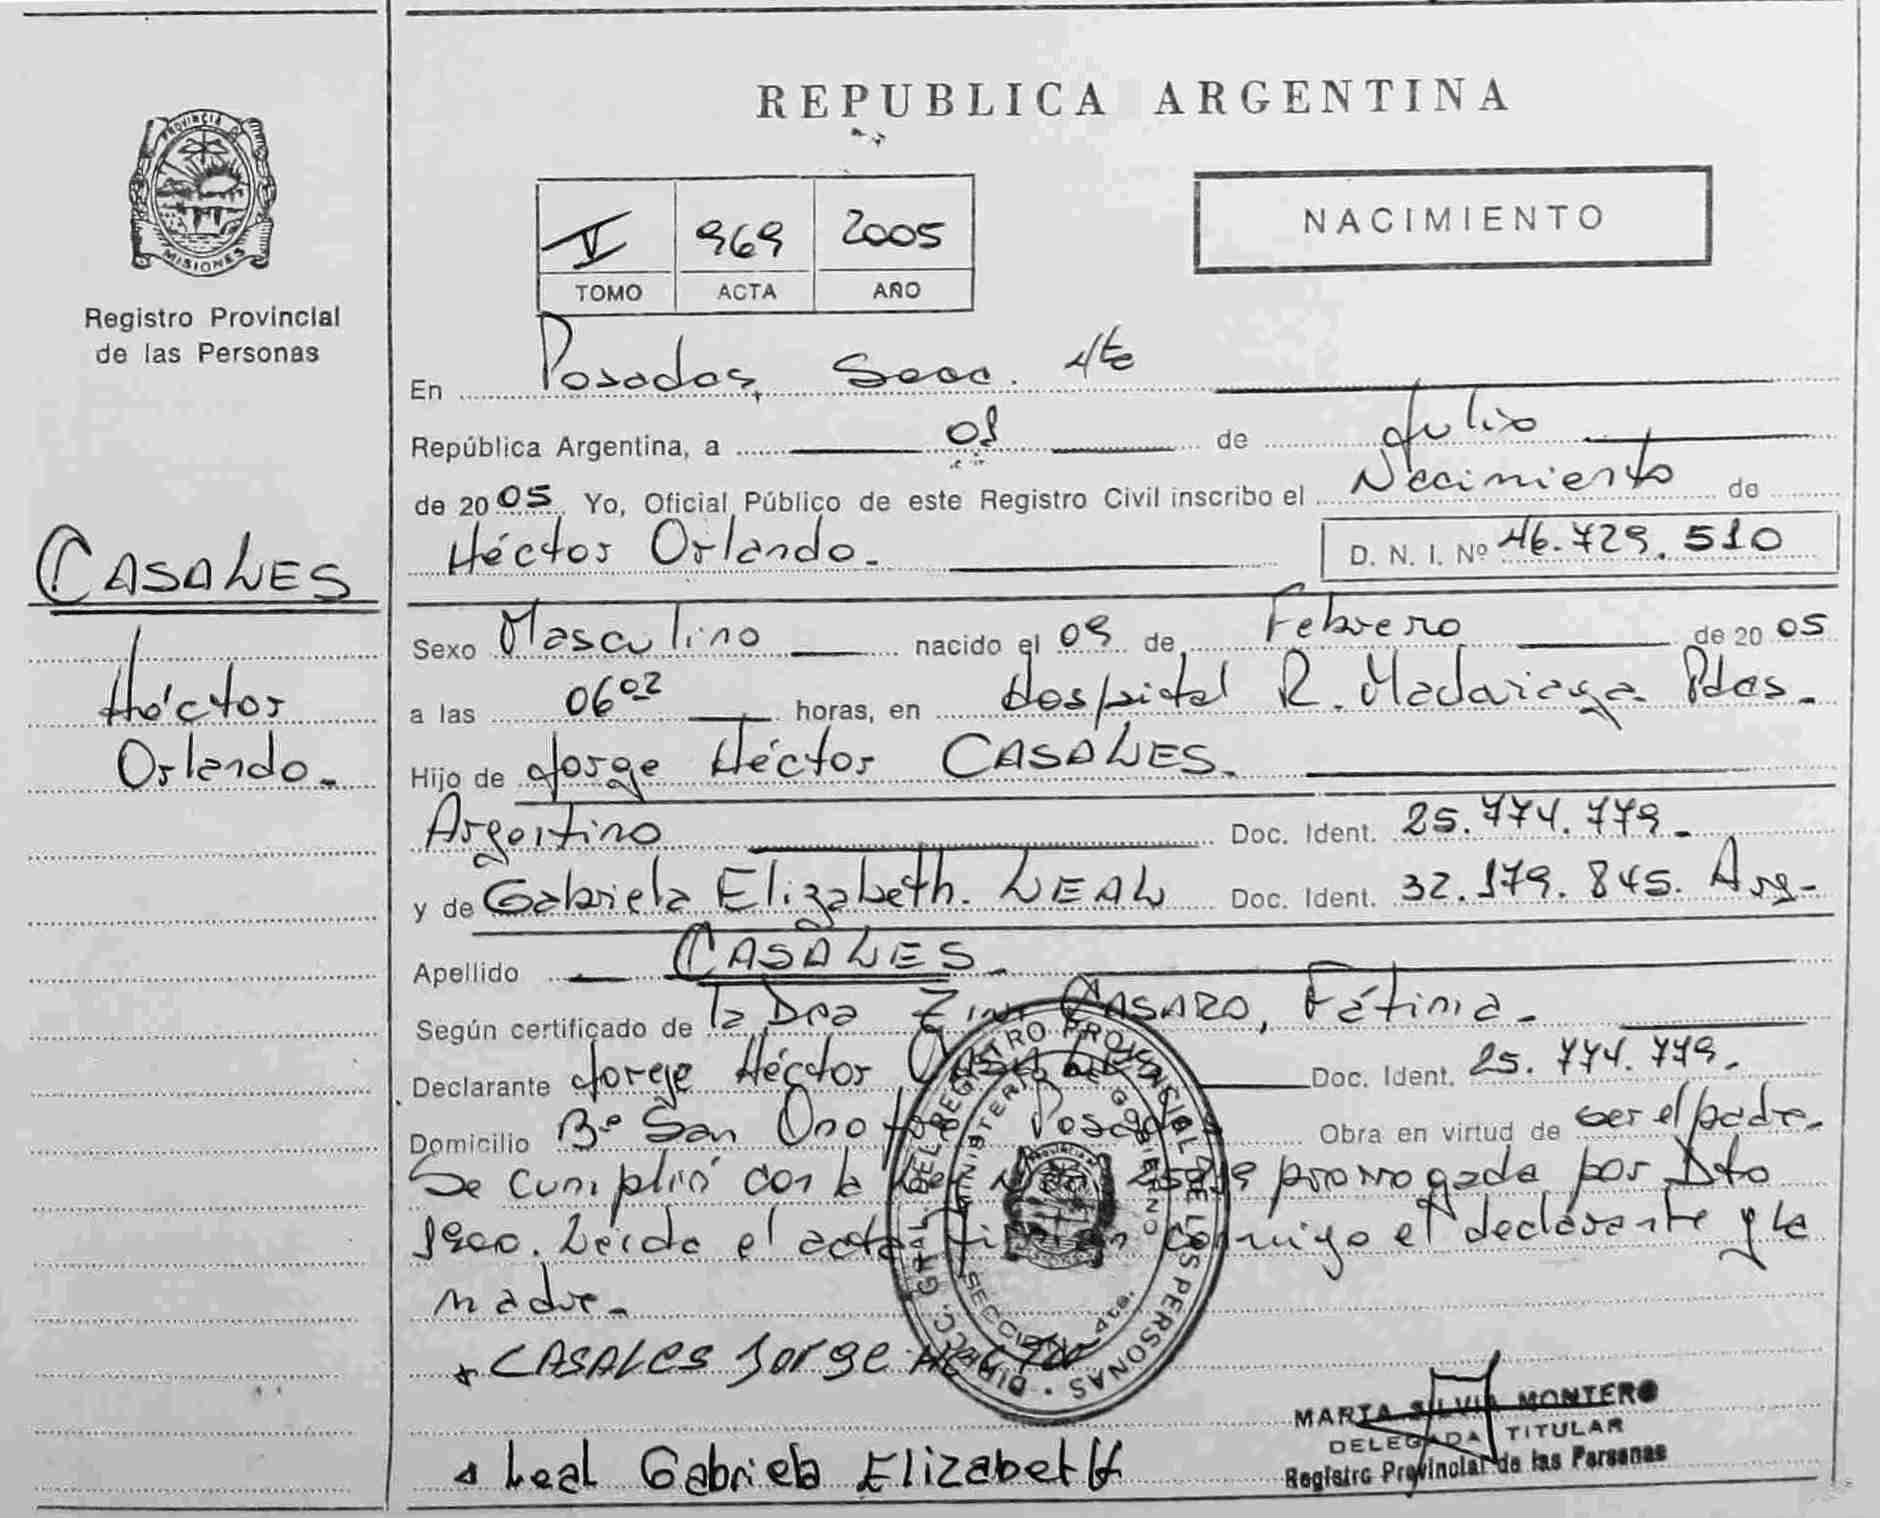 REPUBLICA ARGENTINA
PROVINCIA DE
MISIONES
Registro Provincial
de las Personas
V 969 2005
TOMO ACTA AÑO
NACIMIENTO
En Posadas, Secc. 4ta
República Argentina, a 01 de Julio
de 2005 Yo, Oficial Público de este Registro Civil inscribo el Nacimiento de
Héctor Orlando.
D. N. I. Nº 46.729.510
CASALES
Héctor
Orlando.
Sexo Masculino nacido el 09 de Febrero de 2005
a las 06 02 horas, en Hospital R. Madariaga Pdas.
Hijo de Jorge Héctor CASALES.
Argentino Doc. Ident. 25.774.779.
y de Gabriela Elizabeth. LEAL Doc. Ident. 32.179.845. Arg.
Apellido CASALES.
Según certificado de la Dra CASARO, Fátima.
Declarante Jorge Héctor CASALES Doc. Ident. 25.774.779.
Domicilio Bº San Onofre Posadas Obra en virtud de ser el padre.
Se cumplió con la Ley prorrogada por Dto
1900. Leida el acta firman conmigo el declarante y la
madre.
CASALES JORGE HECTOR
Leal Gabriela Elizabeth
DIRECC. GRAL DEL REGISTRO PROVINCIAL DE LAS PERSONAS
MINISTERIO DE GOBIERNO
SECCION 4ta.
MARTA SILVIA MONTERO
DELEGADA TITULAR
Registro Provincial de las Personas